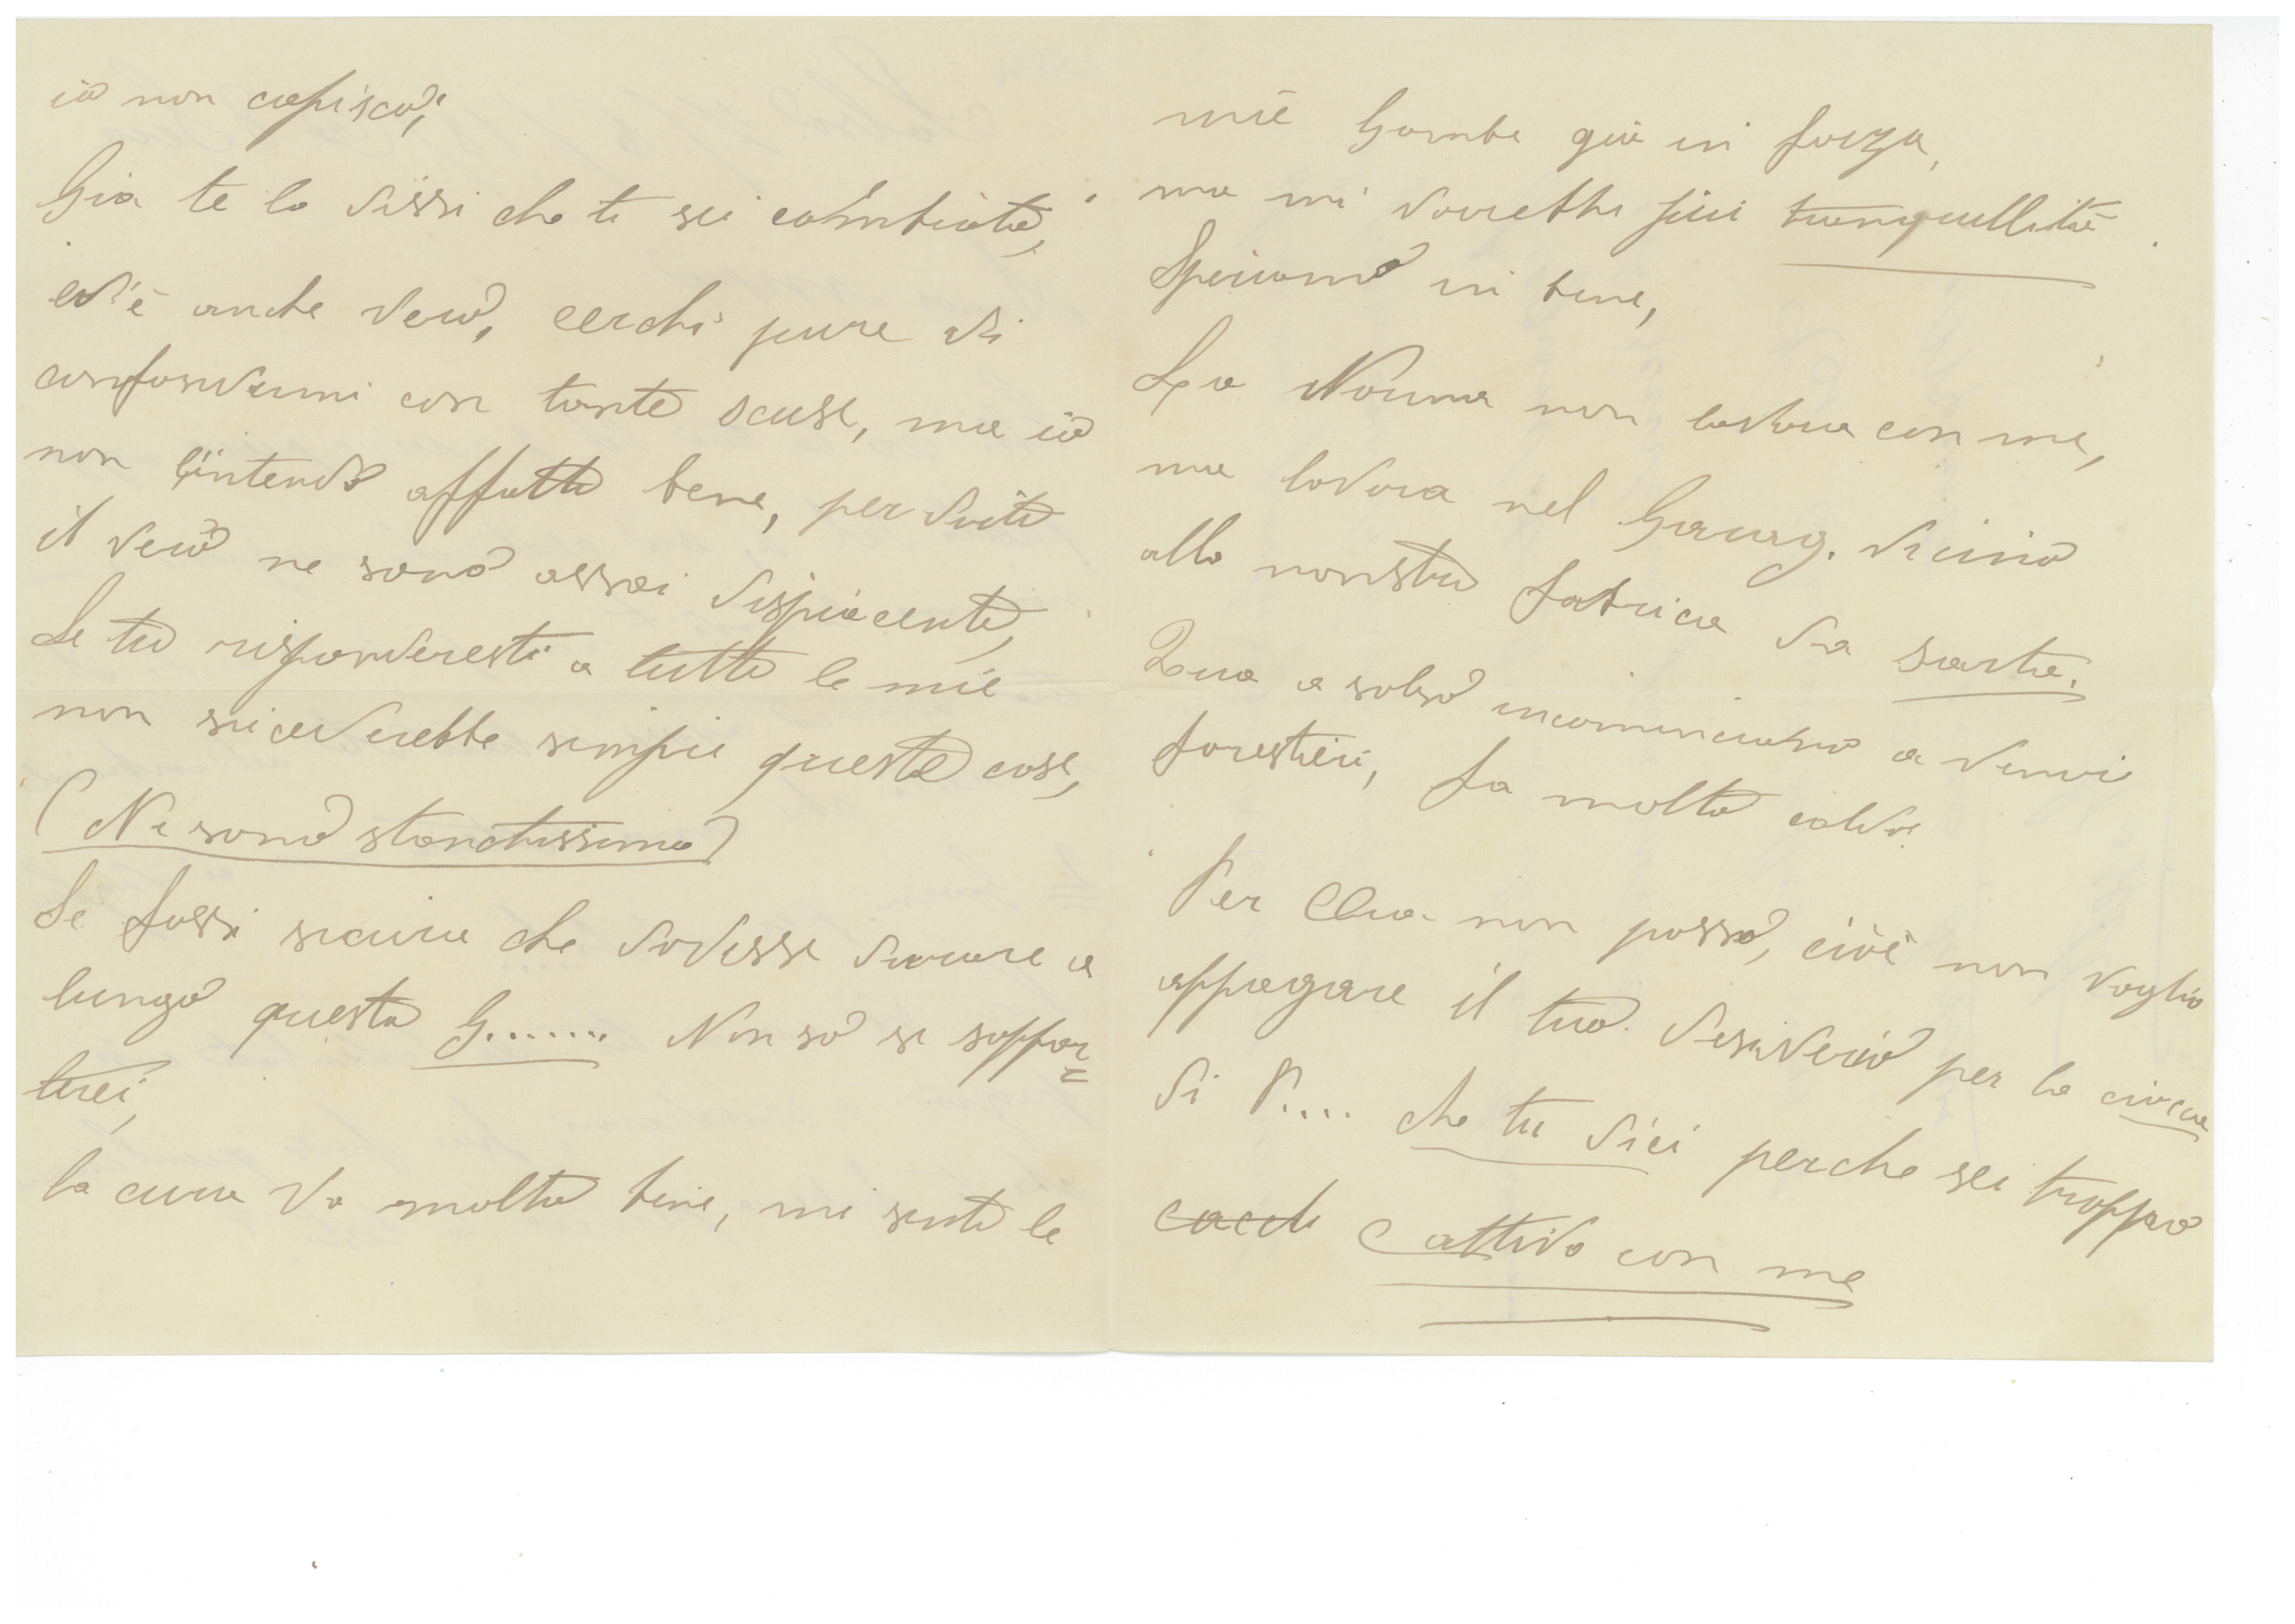 io non capisco;
Gia te lo dissi che ti sei cambiato,
ed'è anche vero, cerchi pure di
confondermi con tante scuse, ma io
non l'intendo affatto bene, per dirti
il vero ne sono assai dispiacente,
Se tu risponderesti a tutte le mie
non riceverebbe sempre queste cose,
(Ne sono stanchissima)
Se fossi sicura che dovesse durare a
lungo questa G....... Non sò se soppor=
terei,
la cura va molto bene, mi sento le
mie Gambe giá in forza,
ma mi vorrebbe piu tranquillitá
Speriamo in bene,
La Norma non lavora con me,
ma lavora nel Garag. vicino
alla nonstra fabrica da sarta.
Qua a salsò incominciano a venire
forestieri, fa molto caldo.
Per Ora non posso, cioè non voglio
appagare il tuo desiderio per la
di P.... che tu dici perche sei troppo
Cattivo con me